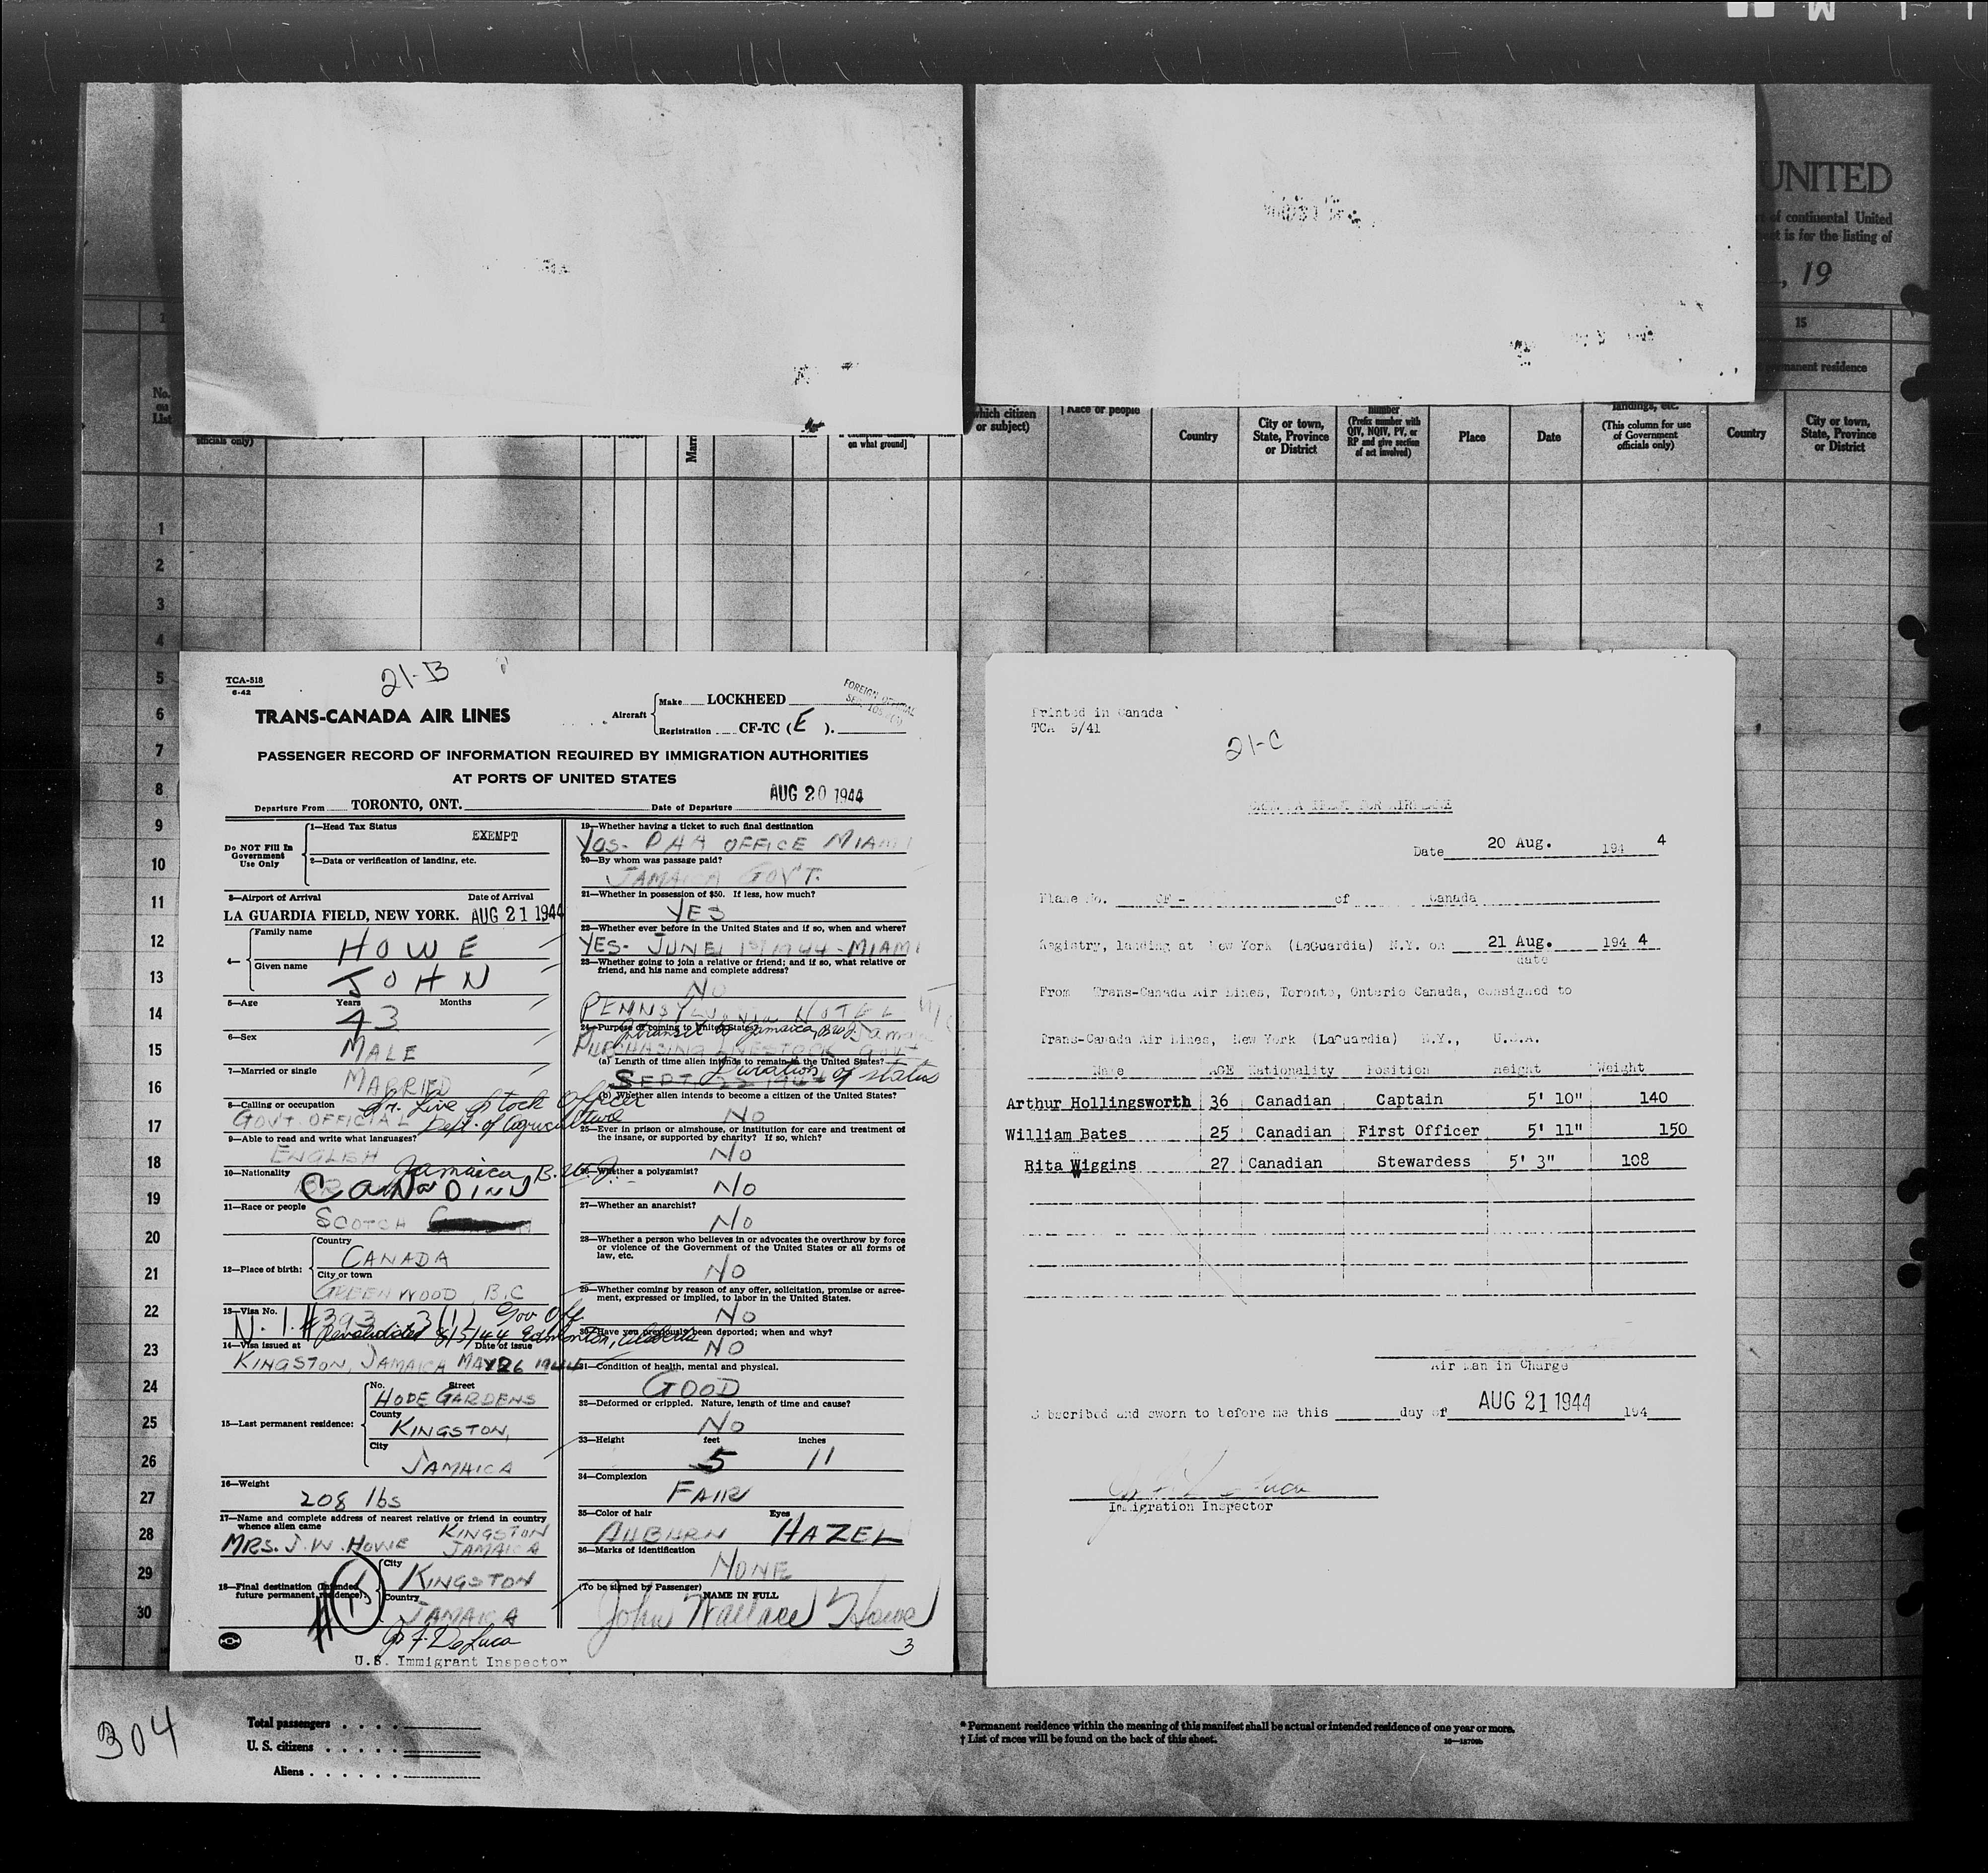 UNITED
of continental United
is for the listing of
, 19
15
permanent residence
No.
on
List
officials only)
on what ground]
which citizen
or subject)
† Race or people
Country
City or town,
State, Province
or District
number
(Prefix number with
QIV, NQIV, PV, or
RP and give section
of act involved)
Place
Date
landings, etc.
(This column for use
of Government
officials only)
Country
City or town,
State, Province
or District
1
2
3
4
5
6
7
8
9
10
11
12
13
14
15
16
17
18
19
20
21
22
23
24
25
26
27
28
29
30
TCA-518
6-42
21-B
TRANS-CANADA AIR LINES
Aircraft
Make LOCKHEED
Registration CF-TC (E).
FOREIGN OFFICIAL
PASSENGER RECORD OF INFORMATION REQUIRED BY IMMIGRATION AUTHORITIES
AT PORTS OF UNITED STATES
Departure From TORONTO, ONT. Date of Departure AUG 20 1944
Do NOT Fill In
Government
Use Only
1—Head Tax Status
EXEMPT
2—Data or verification of landing, etc.
3—Airport of Arrival Date of Arrival
LA GUARDIA FIELD, NEW YORK. AUG 21 1944
4—
Family name
HOWE
Given name
JOHN
5—Age Years Months
43
6—Sex
MALE
7—Married or single
MARRIED
8—Calling or occupation Sr. Live Stock Officer
GOVT OFFICIAL Dept. of Agriculture
9—Able to read and write what languages?
ENGLISH
Jamaica, B.W.I.
10—Nationality
CANADIAN
11—Race or people
SCOTCH
12—Place of birth:
Country
CANADA
City or town
GREENWOOD, B.C
13—Visa No.
N.I. #393 3(1) Gov Off
Revalidated 8/5/44 Edmonton, Alberta
14—Visa issued at Date of issue
KINGSTON, JAMAICA MAY 26 1944
15—Last permanent residence:
No. Street
HOPE GARDENS
County
KINGSTON,
City
JAMAICA
16—Weight
208 lbs
17—Name and complete address of nearest relative or friend in country
whence alien came
KINGSTON
MRS. J. W. HOWE JAMAICA
18—Final destination (Intended
future permanent residence):
City
KINGSTON
Country
JAMAICA
U.S. Immigrant Inspector
19—Whether having a ticket to such final destination
YES- PAA OFFICE MIAMI
20—By whom was passage paid?
JAMAICA GOV'T.
21—Whether in possession of $50. If less, how much?
YES
22—Whether ever before in the United States and if so, when and where?
YES- JUNE 1ST 1944 - MIAMI
23—Whether going to join a relative or friend; and if so, what relative or
friend, and his name and complete address?
NO
PENNSYLVANIA HOTEL
24—Purpose of coming to United States?
Transit to Jamaica, BWI
PURCHASING LIVESTOCK GOVT
(a) Length of time alien intends to remain in the United States?
SEPT. 22 1944 Duration of status
(b) Whether alien intends to become a citizen of the United States?
NO
25—Ever in prison or almshouse, or institution for care and treatment of
the insane, or supported by charity? If so, which?
NO
26—Whether a polygamist?
NO
27—Whether an anarchist?
NO
28—Whether a person who believes in or advocates the overthrow by force
or violence of the Government of the United States or all forms of
law, etc.
NO
29—Whether coming by reason of any offer, solicitation, promise or agree-
ment, expressed or implied, to labor in the United States.
NO
30—Have you previously been deported; when and why?
NO
31—Condition of health, mental and physical.
GOOD
32—Deformed or crippled. Nature, length of time and cause?
NO
33—Height feet inches
5 11
34—Complexion
FAIR
35—Color of hair Eyes
AUBURN HAZEL
36—Marks of identification
NONE
(To be signed by Passenger) NAME IN FULL
John Wallace Howe
3
Printed in Canada
TCA 9/41
21-C
Date 20 Aug. 194 4
Plane No. CF - of Canada
Registry, landing at New York (LaGuardia) N.Y. on 21 Aug. 194 4
date
From Trans-Canada Air Lines, Toronto, Ontario Canada, consigned to
Trans-Canada Air Lines, New York (LaGuardia) N.Y., U.S.A.
Name AGE Nationality Position Height Weight
Arthur Hollingsworth 36 Canadian Captain 5' 10" 140
William Bates 25 Canadian First Officer 5' 11" 150
Rita Wiggins 27 Canadian Stewardess 5' 3" 108
Air Man in Charge
Subscribed and sworn to before me this day of AUG 21 1944 194
Immigration Inspector
304
Total passengers
U. S. citizens
Aliens
* Permanent residence within the meaning of this manifest shall be actual or intended residence of one year or more.
† List of races will be found on the back of this sheet.